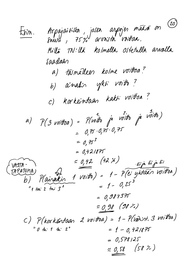 20
Esim. Arpajaisissa, joissa arpojen määrä on
suuri, 75% arvoista voittaa.
Millä tn:llä kolmella ostetulla arvalla
saadaan
a) täsmälleen kolme voittoa?
b) ainakin yksi voitto?
c) korkeintaan kaksi voittoa?
a) P(3 voittoa) = P(voitto ja voitto ja voitto)
= 0,75 · 0,75 · 0,75
= 0,75³
= 0,421875
≈ 0,42 (42 %)
VASTA-
TAPAHTUMA
b) P(ainakin 1 voitto) = 1 - P(ei yhtään voittoa)
"1 tai 2 tai 3"
= 1 - 0,25³
= 0,984375
≈ 0,98 (98 %)
c) P(korkeintaan 2 voittoa) = 1 - P(3 voittoa)
"0 tai 1 tai 2"
= 1 - 0,421875
= 0,578125
≈ 0,58 (58 %)